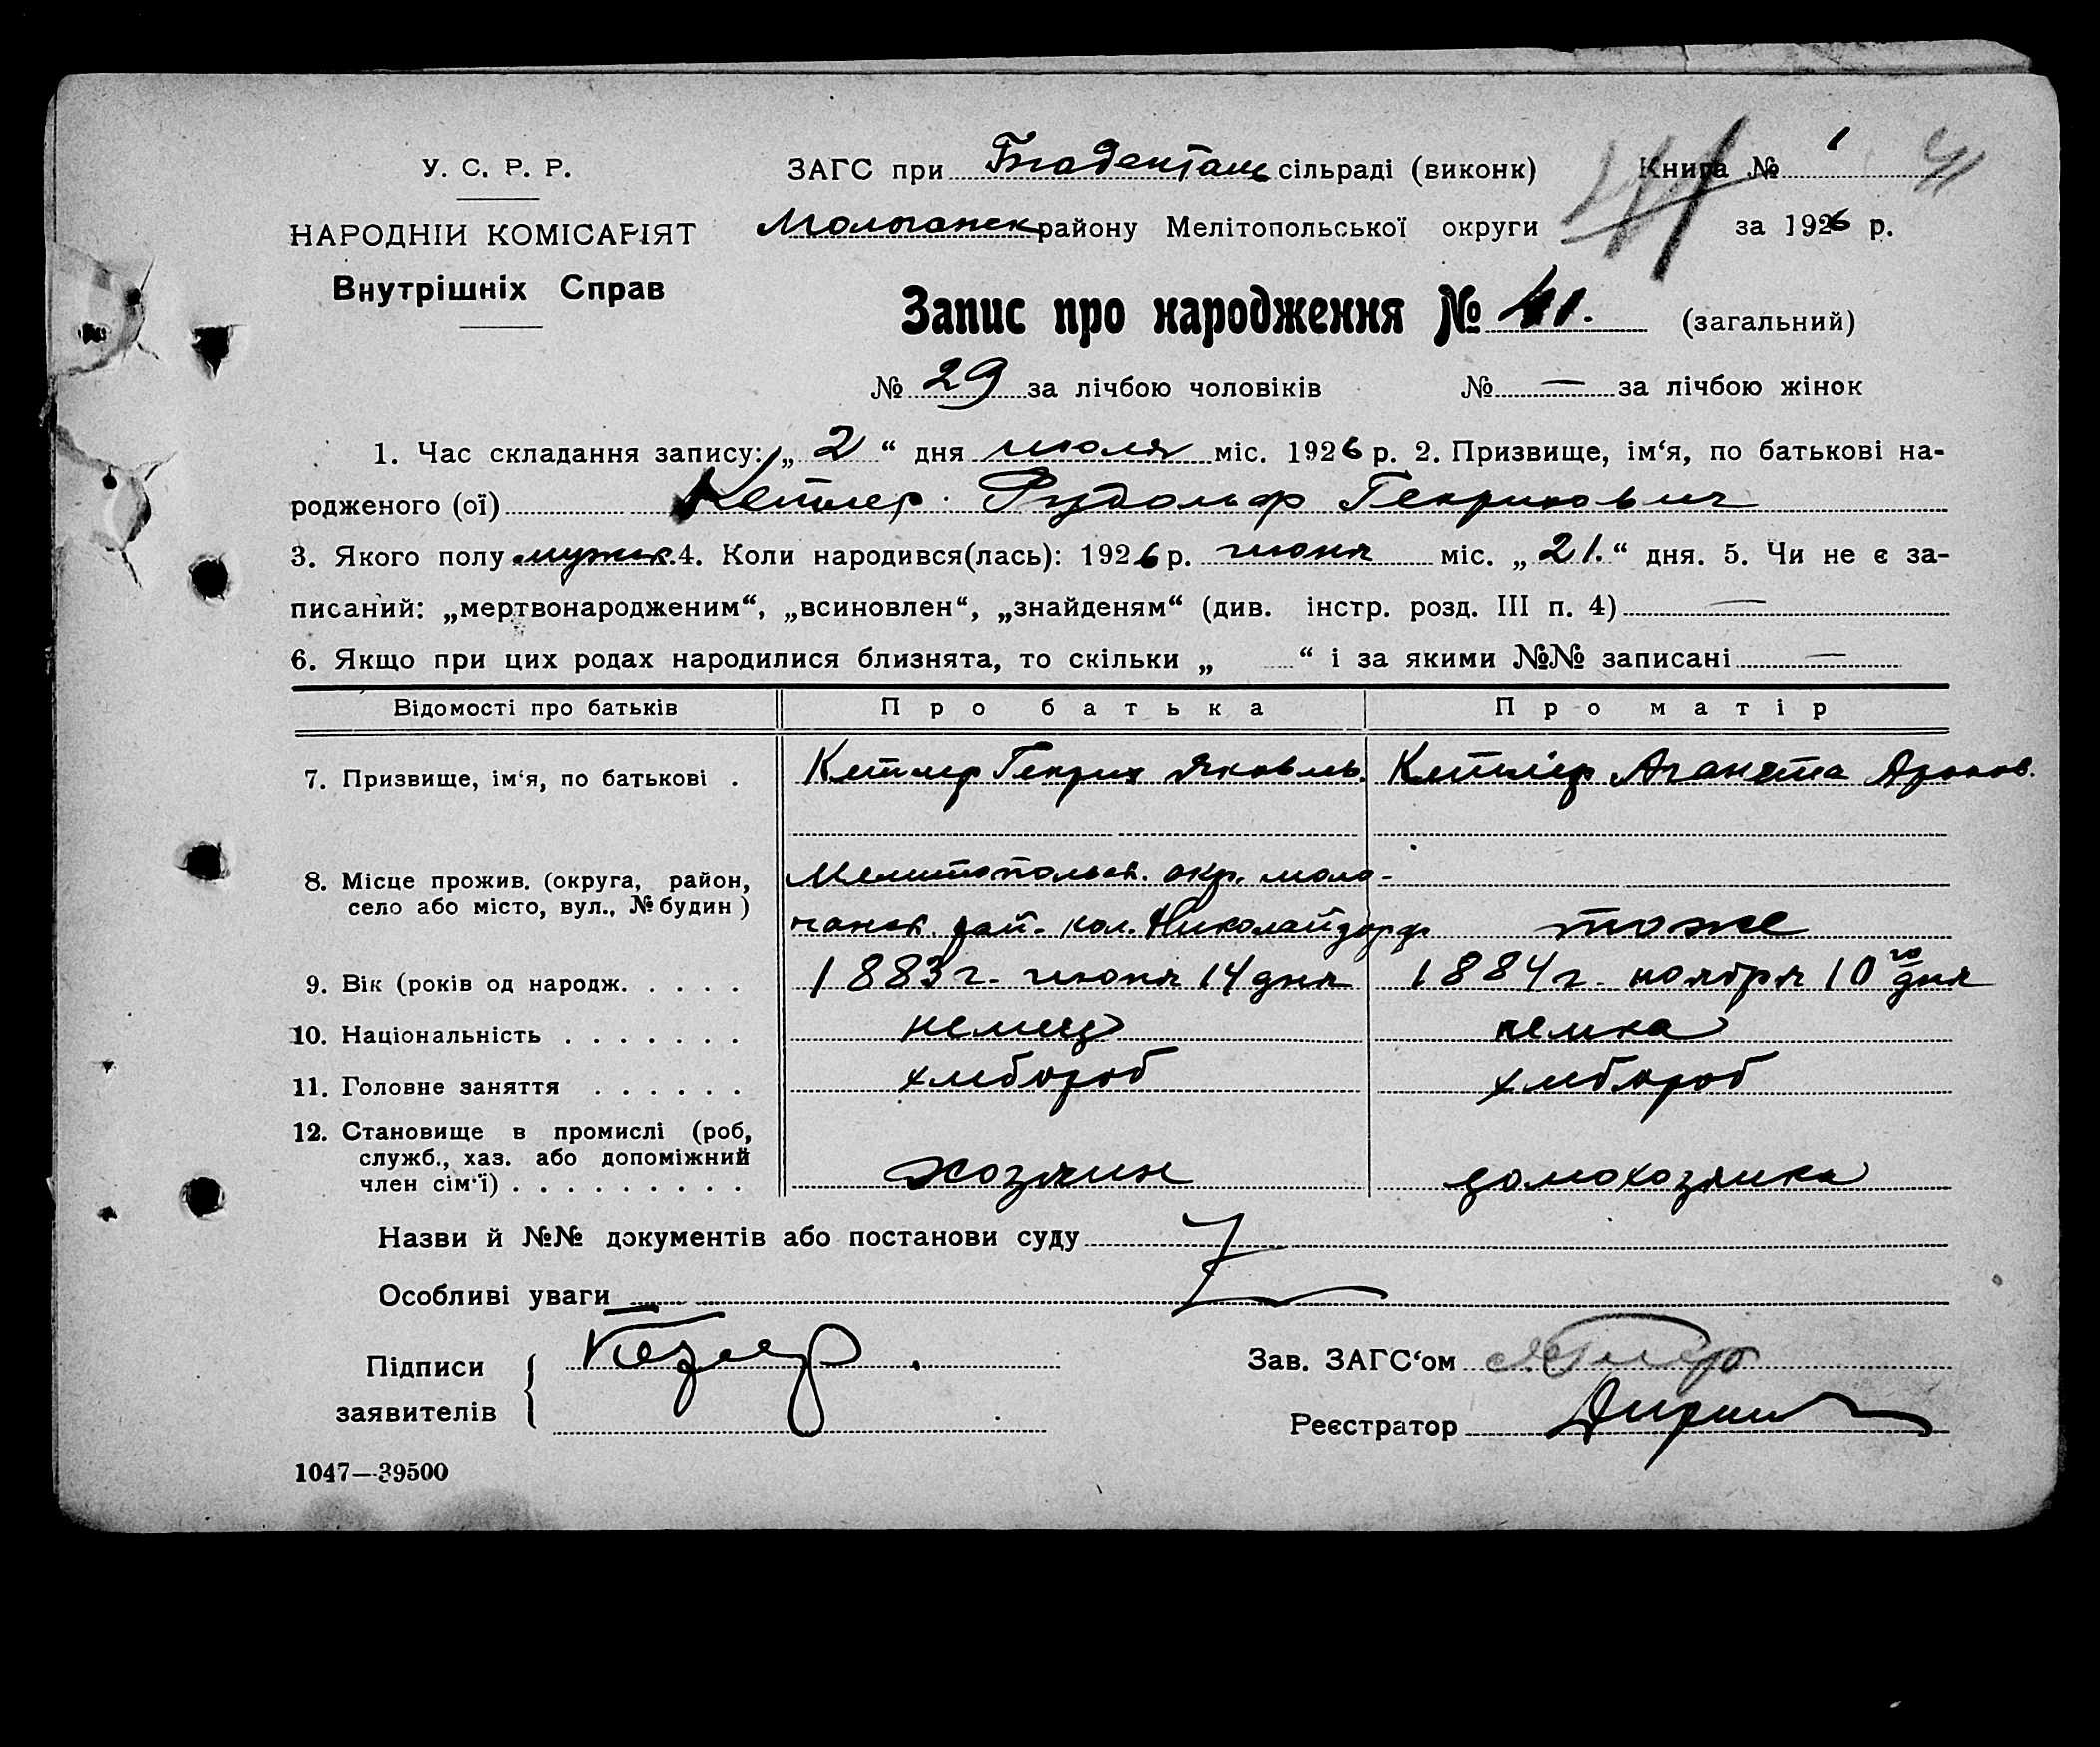 У. С. Р. Р.
НАРОДНІЙ КОМІСАРІЯТ
Внутрішніх Справ
ЗАГС при Гнаденталь сільраді (виконк) Книга № 1 41
Молочанск району Мелітопольської округи 41 за 1926 р.
Запис про народження № 41. (загальний)
№ 29 за лічбою чоловіків № — за лічбою жінок
1. Час складання запису: „ 2 “ дня июля міс. 1926 р. 2. Призвище, ім‘я, по батькові на-
родженого (ої) Кетлер Рудольф Генрихович
3. Якого полу мужск. 4. Коли народився(лась): 1926 р. июня міс. „ 21. “ дня. 5. Чи не є за-
писаний: „мертвонародженим“, „всиновлен“, „знайденям“ (див. інстр. розд. III п. 4) —
6. Якщо при цих родах народилися близнята, то скільки „ “ і за якими №№ записані —
Відомості про батьків Про батька Про матір
7. Призвище, ім‘я, по батькові . Кетлер Генрих Яковль. Кетлер Аганета Аронов.
8. Місце прожив. (округа, район, село або місто, вул., № будин) Мелитопольск. окр. моло-
чанск. рай. кол. Николайдорф тоже
9. Вік (років од народж. . . . . 1883 г. июня 14 дня 1884 г. ноября 10го дня
10. Національність . . . . . . . немец немка
11. Головне заняття . . . . . . хлбороб хлбороб
12. Становище в промислі (роб,
служб., хаз. або допоміжний
член сім‘ї) . . . . . . . . . хозяин домохозяика
Назви й №№ документів або постанови суду
Особливі уваги
Підписи
заявителів
Зав. ЗАГС‘ом
Реєстратор
1047—39500